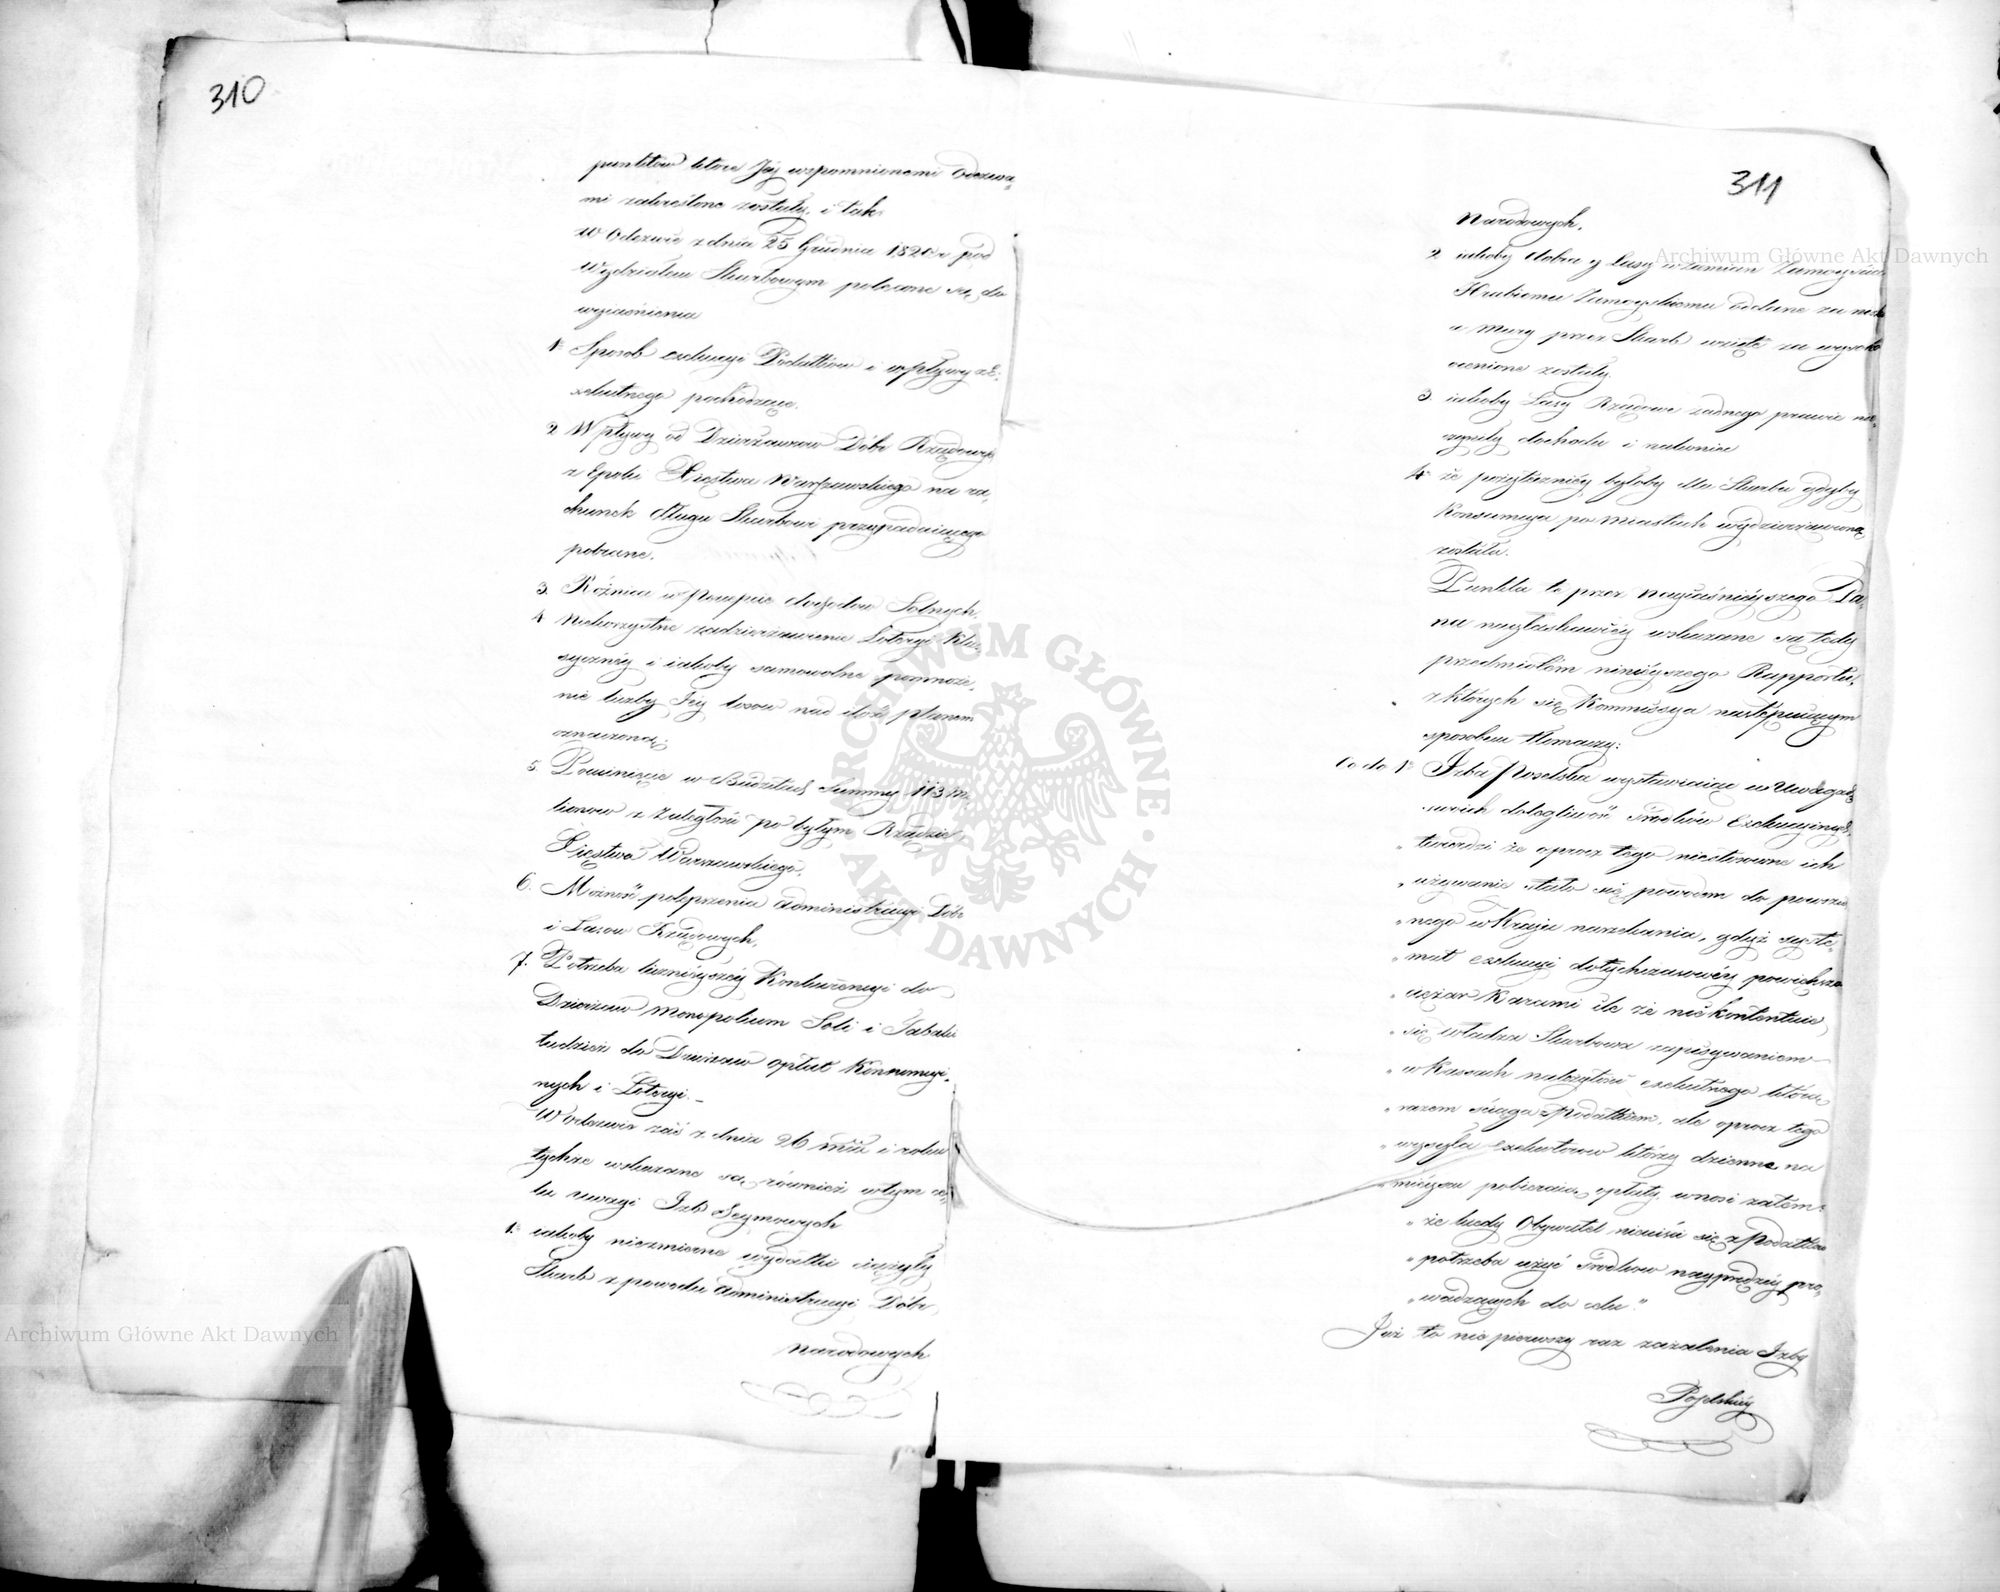 310
punktów które Jej wspomnionemi Odezwa-
mi zakreślone zostały, i tak:
W Odezwie z dnia 25 Grudnia 1820 r pod
Wydziałem Skarbowym polecone są do
wyjaśnienia
1° Sposob exekucyi Podatków i wpływy z E-
xekutnego pochodzące.
2. Wpływy od Dzierżawców Dóbr Rządowych
z Epoki Xięstwa Warszawskiego na ra-
chunek długu Skarbowi przypadaiącego
pobrane.
3. Różnica w poczcie dochodów Solnych.
4. Niekorzystne zadzierżawienie Loteryi Kla-
syczney i iakoby samowolne pomnoże-
nie liczby Jey losów nad ilość planem
oznaczoną.
5. Pominięcie w Budżetach Summy 113 Mi-
lionów z Zaległości po byłym Rządzie
Xięstwa Warszawskiego.
6. Możność polepszenia Administracyi Dóbr
i Lasów Rządowych,
7. Potrzeba licznieyszéy Konkurrencyi do
Dzierżaw monopolium Soli i Tabaki
tudzież do Dzierżaw opłat Konsumcyi-
nych i Loteryi. —
W odezwie zaś z dnia 26 mca i roku
tychże wskazane są również w tym ce-
lu uwagi Izb Seymowych
1° iakoby niezmierne wydatki ciążyły
Skarb z powodu Administracyi Dóbr
Narodowych
311
Narodowych,
2. iakoby dobra y lasy w zamian Zamościa
Hrabiemu Zamoyskiemu oddane za nisko
a Mury przez Skarb wzięte za wysoko
ocenione zostały.
3. iakoby Lasy Rządowe żadnego prawie nie
czyniły dochodu i nakoniec
4° że pożyteczniéy byłoby dla Skarbu gdyby
Konsumcya po Miastach wydzierżawioną
została.
Punkta te przez Nayjaśnieyszego Pa-
na nayłaskawiéy wskazane są tedy
przedmiotem ninieyszego Rapportu,
z których się Kommissya następuiącym
sposobem tłomaczy:
Co do 1° Izba Poselska wystawiaiąc w Uwagach
swoich dolegliwość środków Exekucyinych,
„twierdzi że oprocz tego niestosowne ich
„używanie stało się powodem do powszech
„nego w Kraju narzekania, gdyż syste-
„mat exekucyi dotychczasowéy powiększa
„ciężar Karami ile że nie kontentuie
„się władza Skarbowa zapisywaniem
„w Kassach należytości exekutnego które
„razem ściąga z Podatkiem, ale oprocz tego
„wysyła exekutorow którzy dzienne na
„mieyscu pobieraią opłaty, wnosi zatém:
„że kiedy Obywatel nieuiści się z Podatków
„potrzeba użyć środków nayprędzéy pro-
„wadzących do celu."
Już to nie pierwszy raz zażalenia Izby
Poselskiéy
Archiwum Główne Akt Dawnych
Archiwum Główne Akt Dawnych
ARCHIWUM GŁÓWNE · AKT DAWNYCH ·